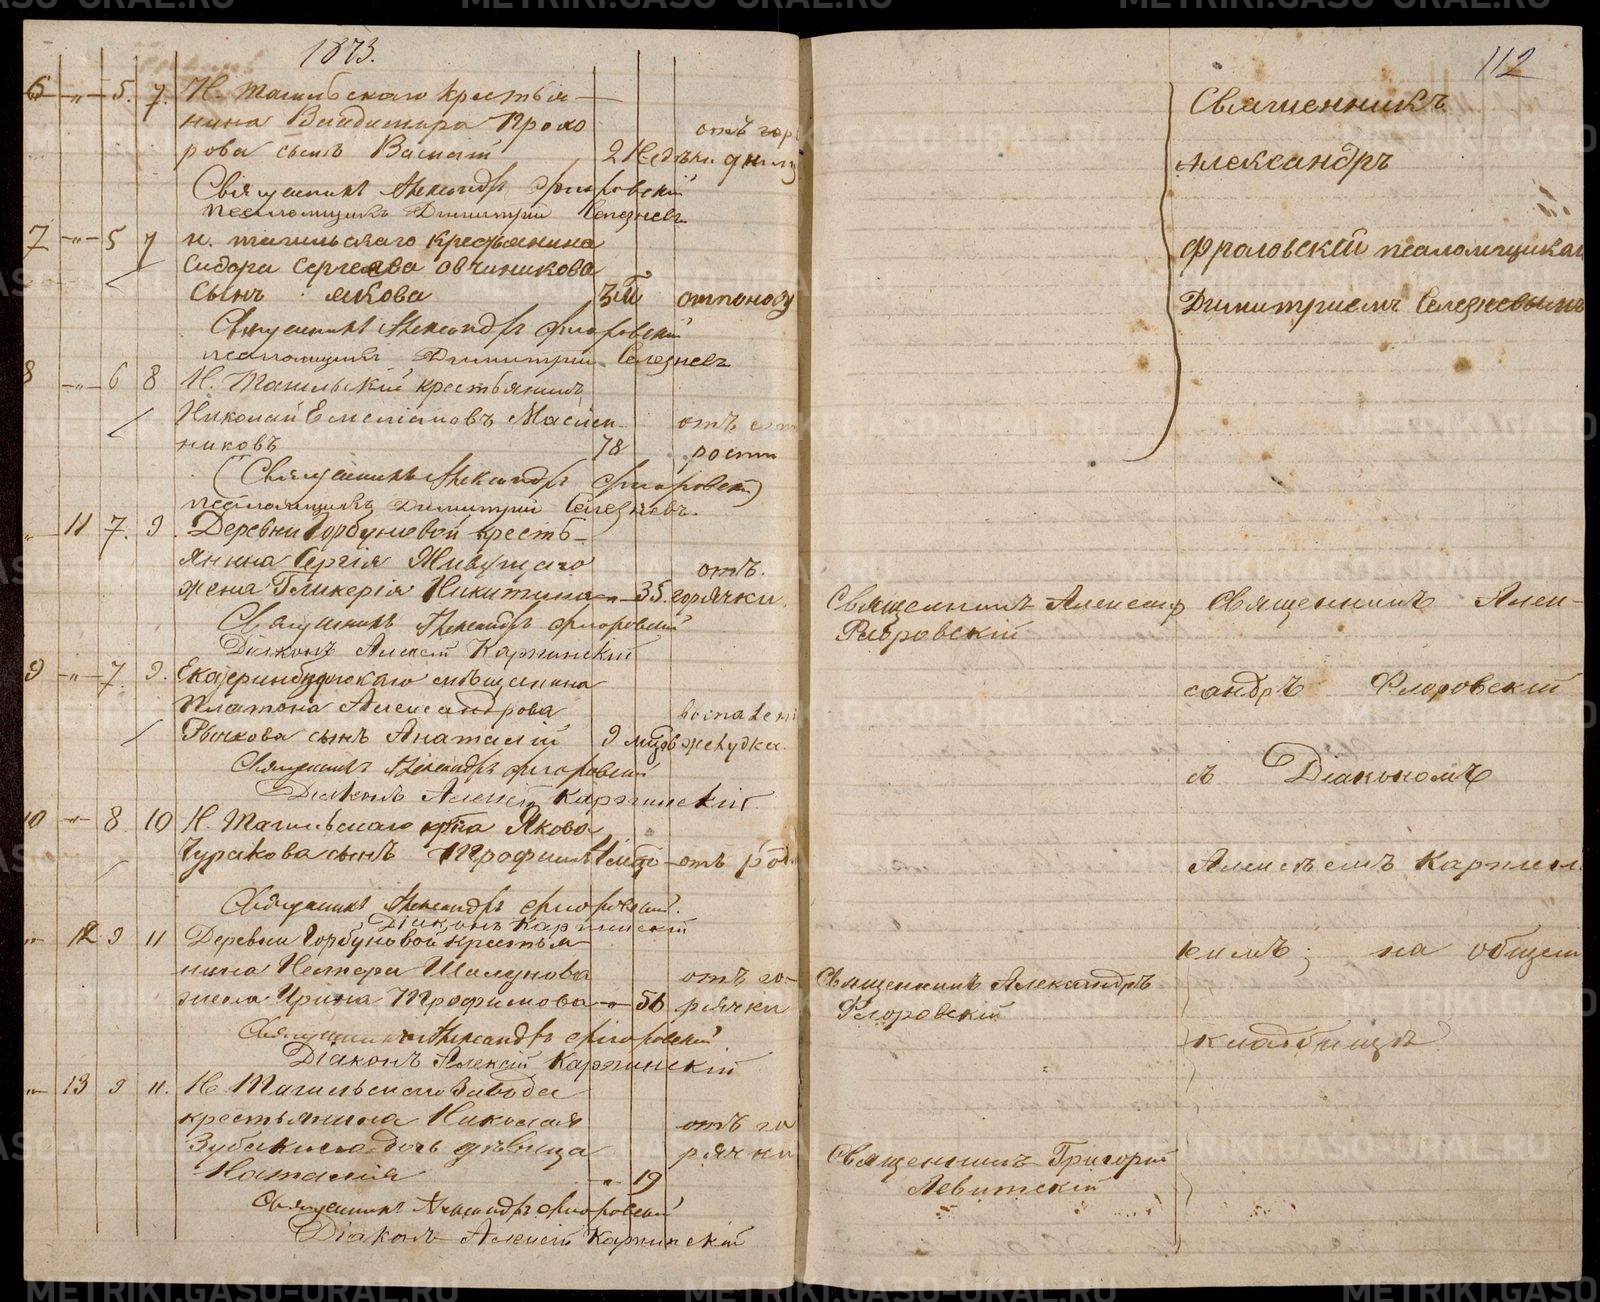 1873.
6 -"- 5. 7. Н. Тагильскаго крестья-
нина Владимира Прохо
рова сынъ Василій 2 недѣли
отъ
Священникъ Александръ Флоровскій
псаломщикъ Димитрій Селезневъ
7 -"- 5 7 н. тагильскаго крестьянина
Сидора Сергеева овчиникова
сынъ якова 3 м отпоносу
Священникъ Александръ Флоровскій
псаломщикъ Димитрій Селезневъ
8 -"- 6 8 Н. Тагильскій крестьянинъ
Николай Емелiановъ Маслен
никовъ 78
отъ
рости
Священникъ Александръ Флоровскій
псаломщикъ Димитрій Селезневъ.
" 11 7. 9. Деревни Горбуновой крестъ-
янина Сергія Живущаго
жена Гликерія Никитина -"- 35.
отъ.
горячки.
Священникъ Александръ Флоровскій
Діаконъ Алексій Карпинскій
9 -"- 7. 9. Екатеринбургскаго мѣщанина
Платона Александрова
Рычкова сынъ Анатолій 9 мцов желудка.
Священникъ Александръ Флоровскій
Діаконъ Алексій Карпинскій
10 -"- 8 10 Н. Тагильскаго крна Якова
Чуракова сынъ Трофимъ отъ
Священникъ Александръ Флоровскій.
Діаконъ Карпинскій
-"- 12 9 11 Деревни Горбуновой крестья-
нина Нестера Шалунова
жена Ирина Трофимова -"- 56
отъ го-
рячки
Священникъ Александръ Флоровскій
Діаконъ Алексій Карпинскій
-"- 13 9 11. Н. Тагильскаго завода
крестьянина Николая
Зубакина дочь дѣвица
Наталія -"- 19
отъ го
рячки
Священникъ Александръ Флоровскій
Діаконъ Алексій Карпинскій
112
Священникъ
Александръ
Фроловскій псаломщикам
Димитриемъ Селезневымъ
Священникъ Александр
Флоровскій
Священникъ Алек-
сандръ Флоровскій
съ Діакономъ
Алексѣемъ Карпин
скимъ; на общем
кладбищѣ
Священникъ Александръ
Флоровскій
Священникъ Григорій
Левитскій
METRIKI.GASO-URAL.RU